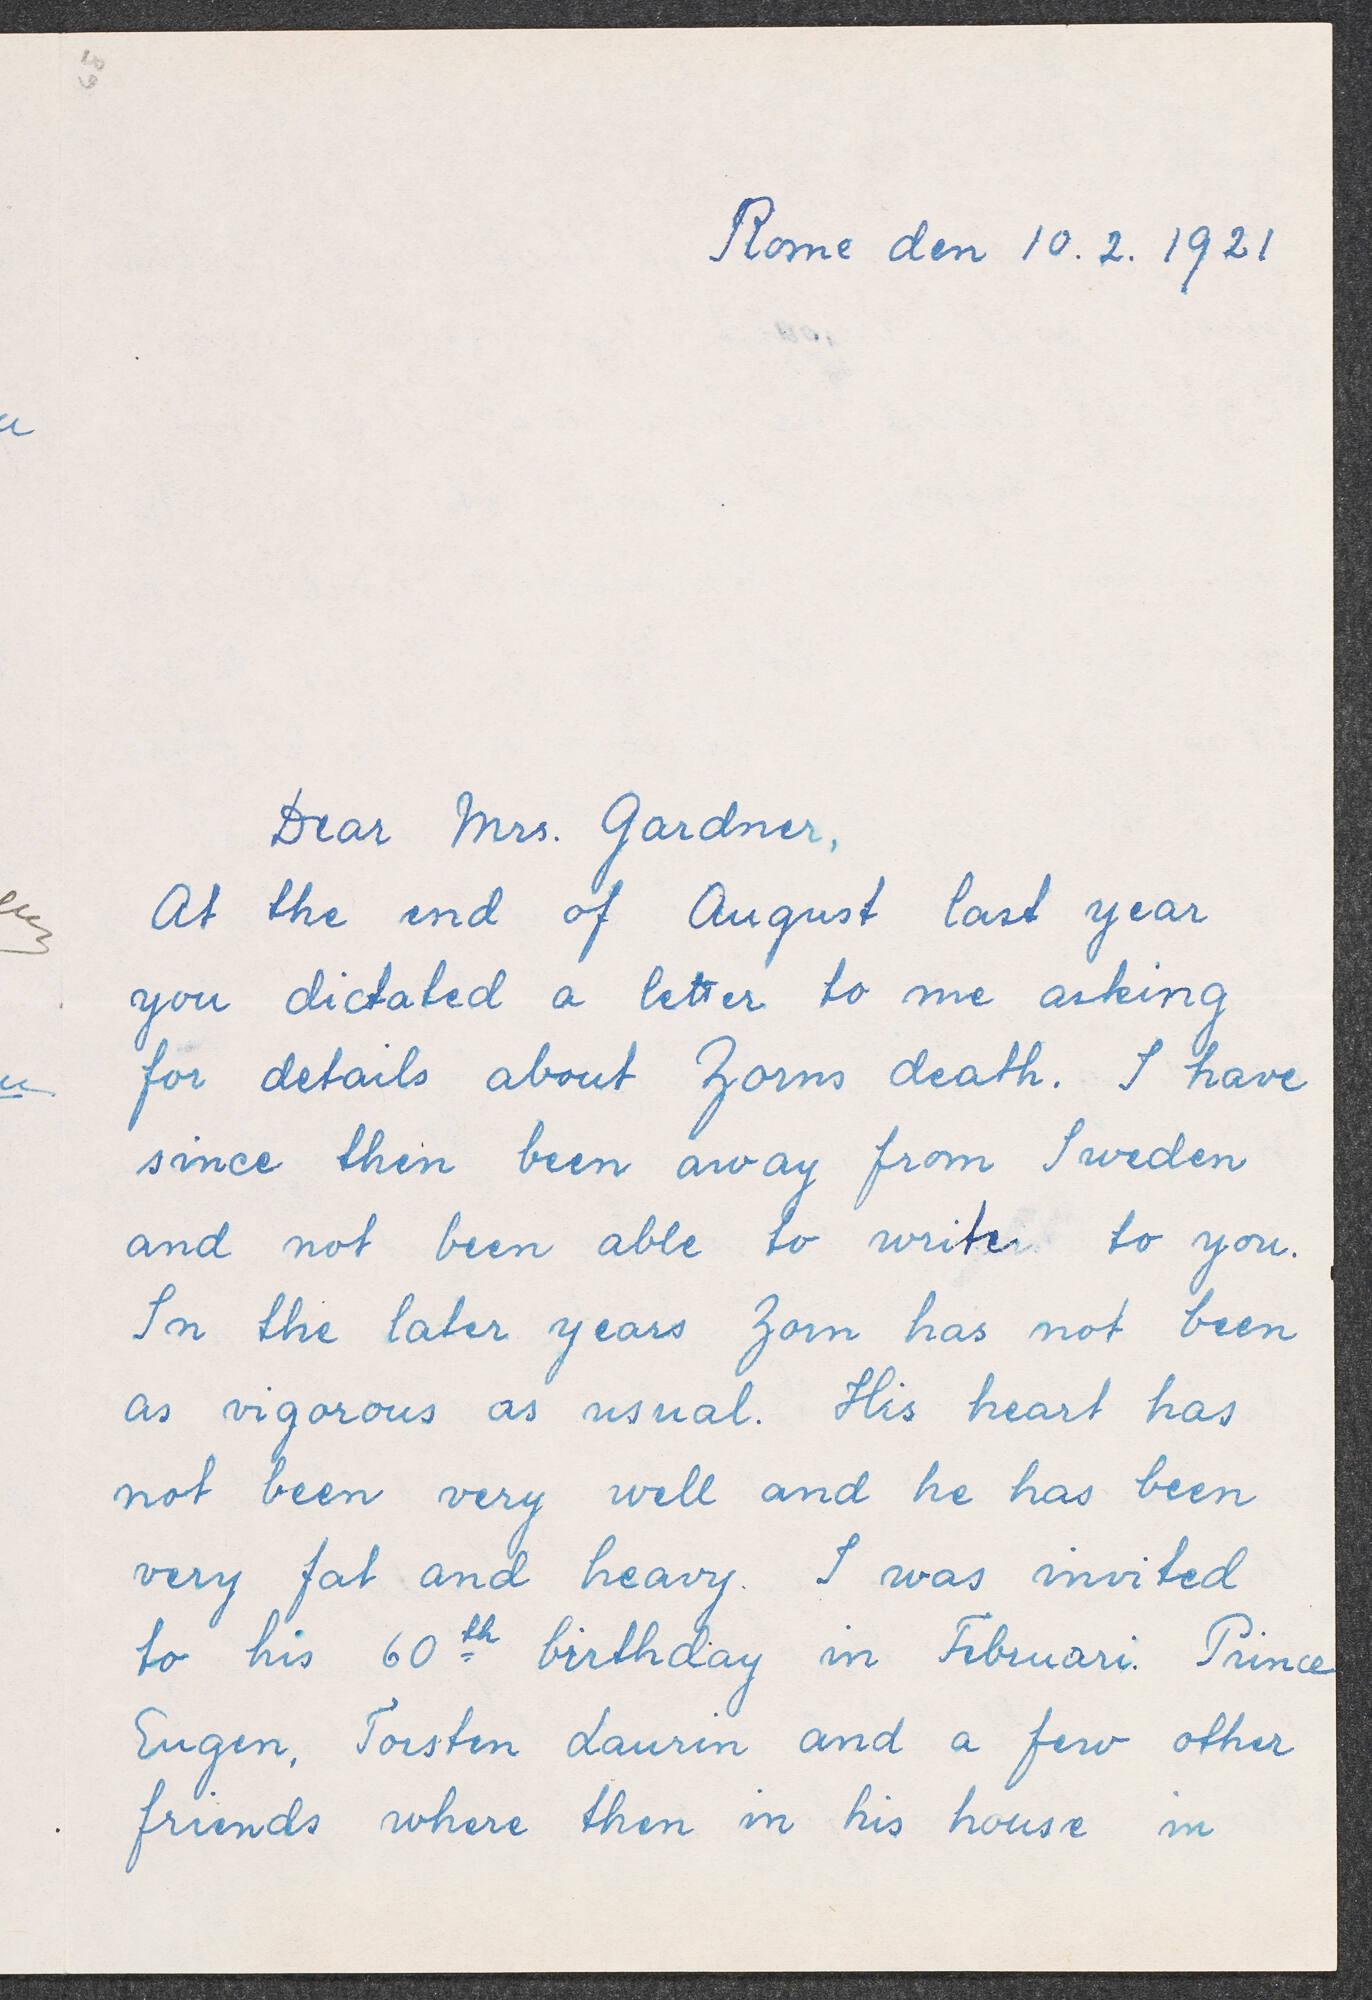 Rome den 10. 2. 1921
Dear Mrs. Gardner,
At the end of August last year
you dictated a letter to me asking
for details about Zorns death. I have
since then been away from Sweden
and not been able to write to you.
In the later years Zorn has not been
as vigorous as usual. His heart has
not been very well and he has been
very fat and heavy. I was invited
to his 60th birthday in Februari. Prince
Eugen, Torsten Laurin and a few other
friends where then in his house in